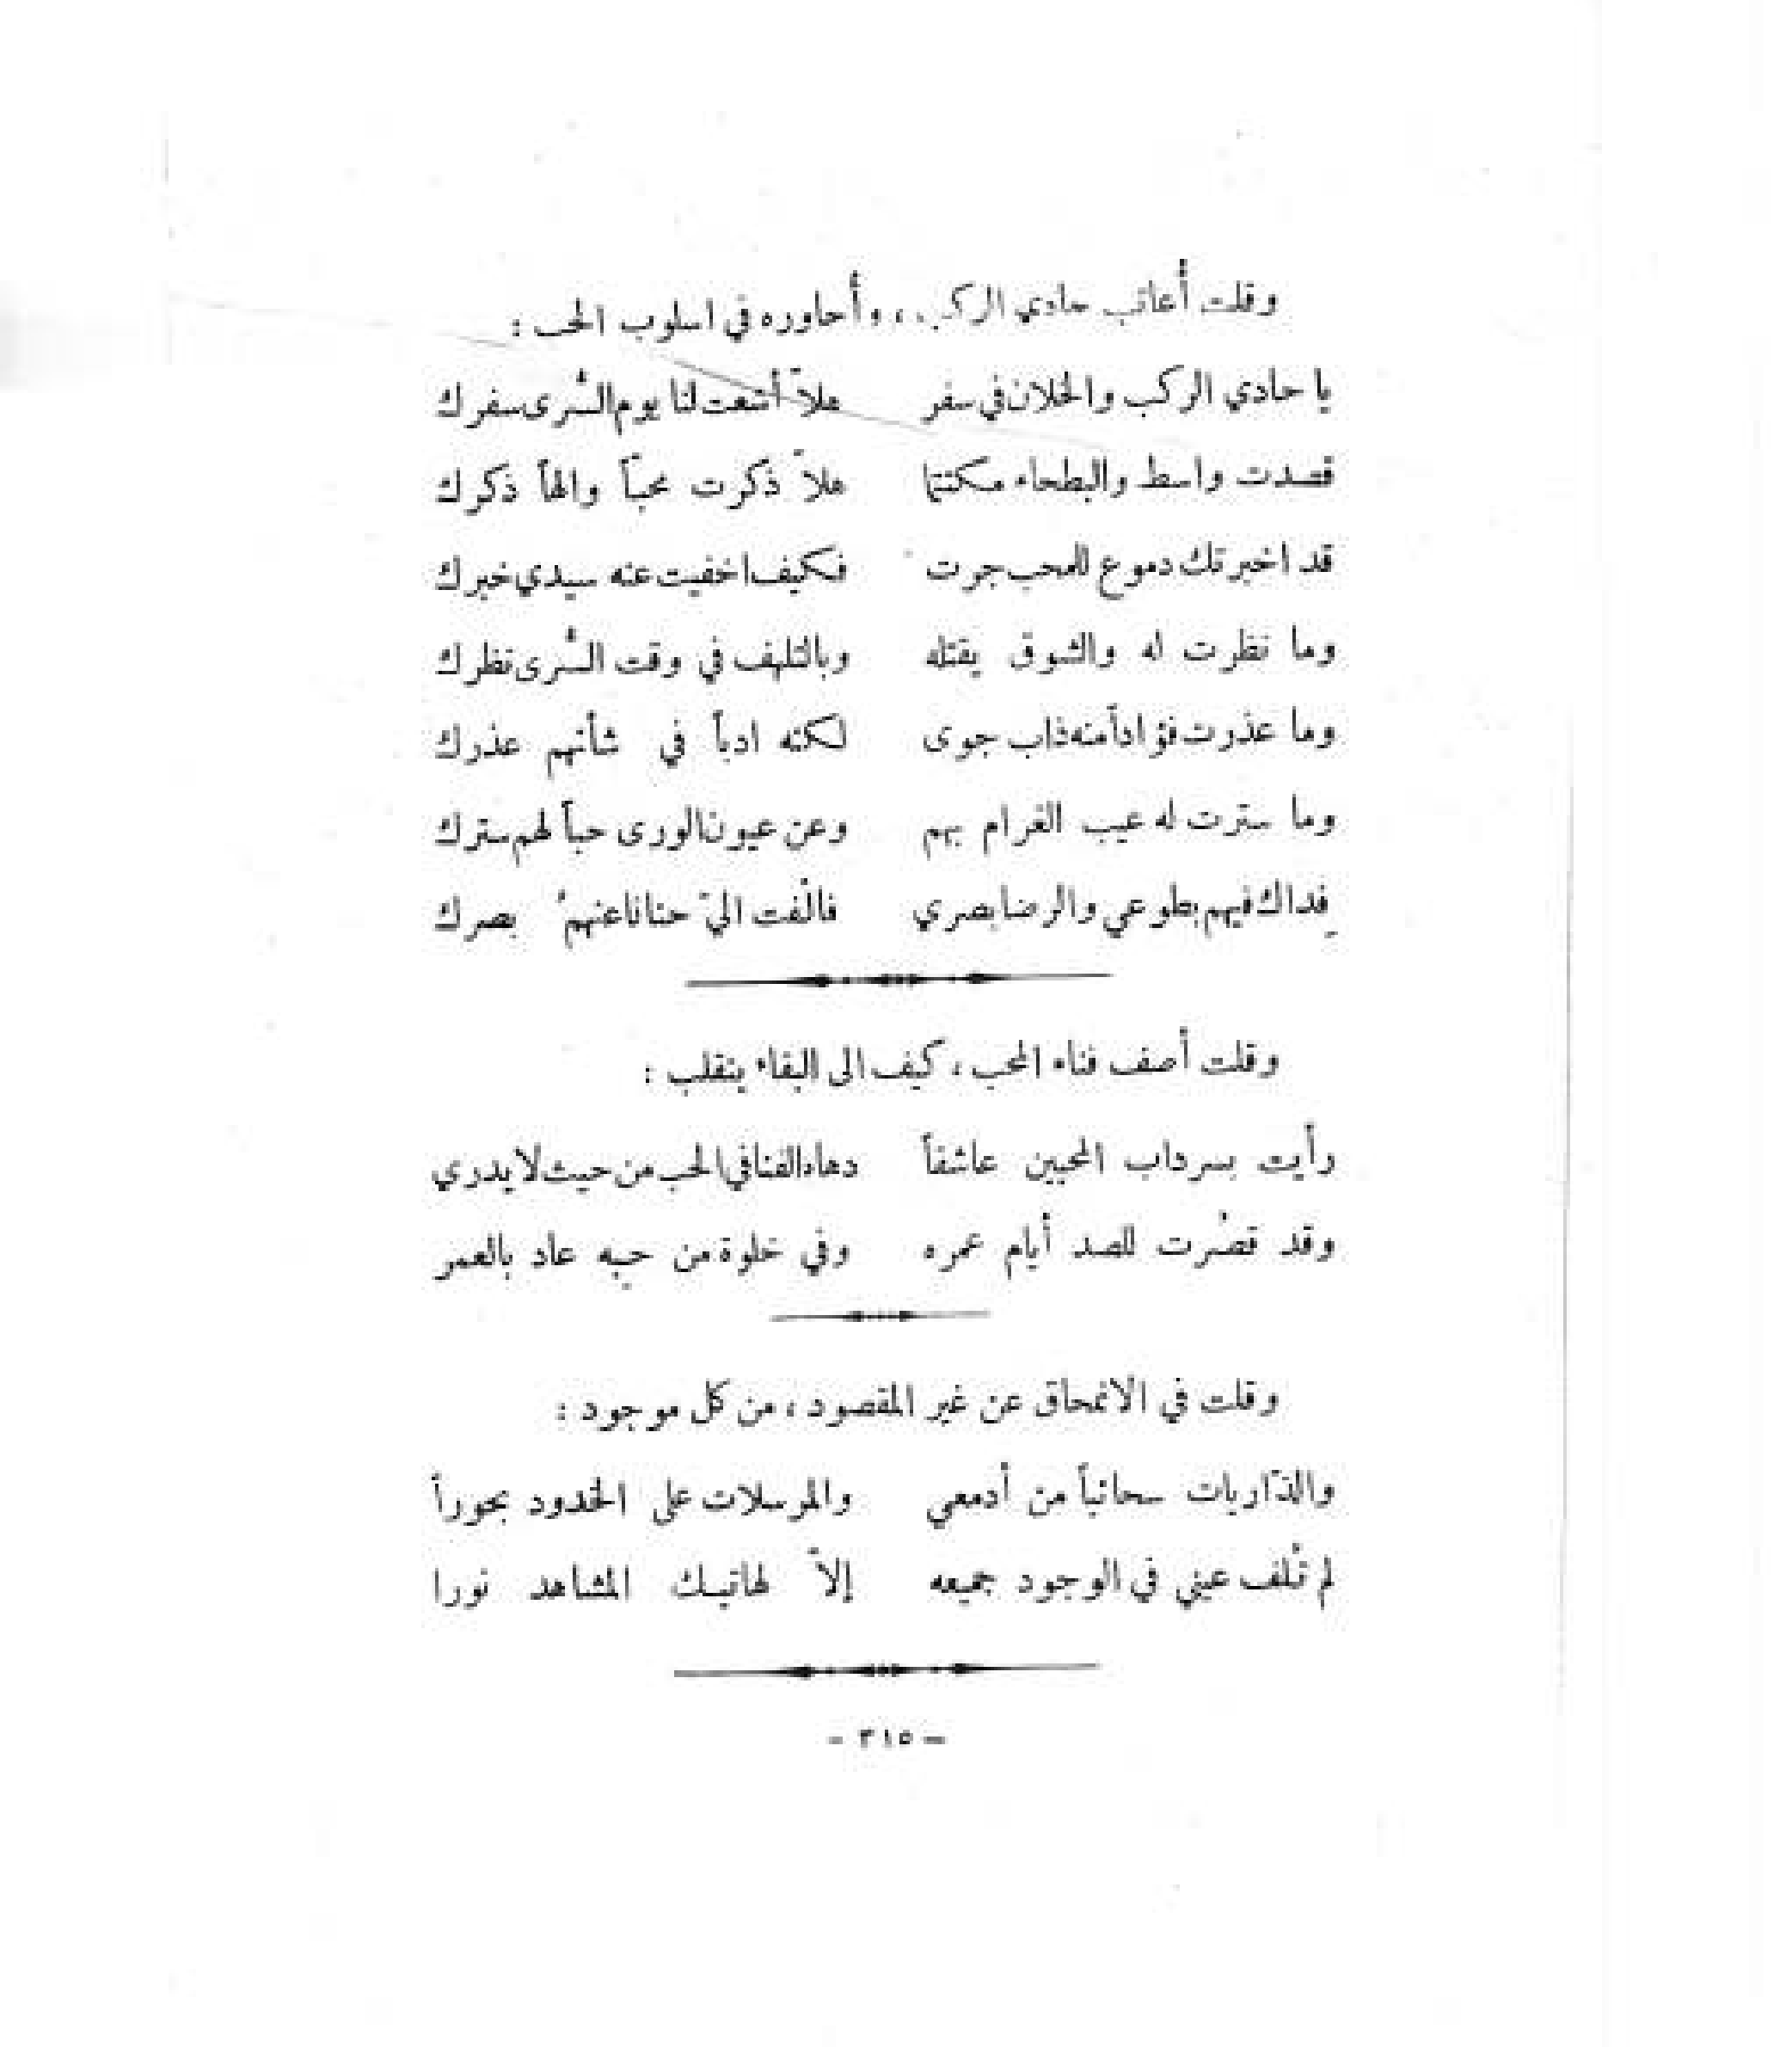 وقلت أُعاتب حادي الركب ، وأُحاوره في اسلوب الحب :
يا حادي الركب والخلان في سفر هلاّ أشعت لنا يوم السُّرى سفرك
قصدت واسط والبطحاء مكتتما هلاّ ذكرت محبّاً والهاً ذكرك
قد اخبرتك دموع للمحب جرت فكيف اخفيت عنه سيدي خبرك
وما نظرت له والشوق يقتله وبالتلهف في وقت السُّرى نظرك
وما عذرت فؤاداً منه ذاب جوى لكنه ادباً في شأنهم عذرك
وما سترت له عيب الغرام بهم وعن عيون الورى حباً لهم سترك
فداك فيهم بطوعي والرضا بصري فالْفت اليّ حنانا عنهمُ بصرك
وقلت أصف فناء المحب ، كيف الى البقاء ينقلب :
رأيت بسرداب المحبين عاشقاً دهاه الفنا في الحب من حيث لا يدري
وقد قصُرت للصد أيام عمره وفي خلوة من حبه عاد بالعمر
وقلت في الانمحاق عن غير المقصود ، من كل موجود :
والذّاريات سحائباً من أدمعي والمرسلات على الخدود بحوراً
لم تُلف عيني في الوجود جميعه إلاّ لهاتيك المشاهد نورا
- ٣١٥ -